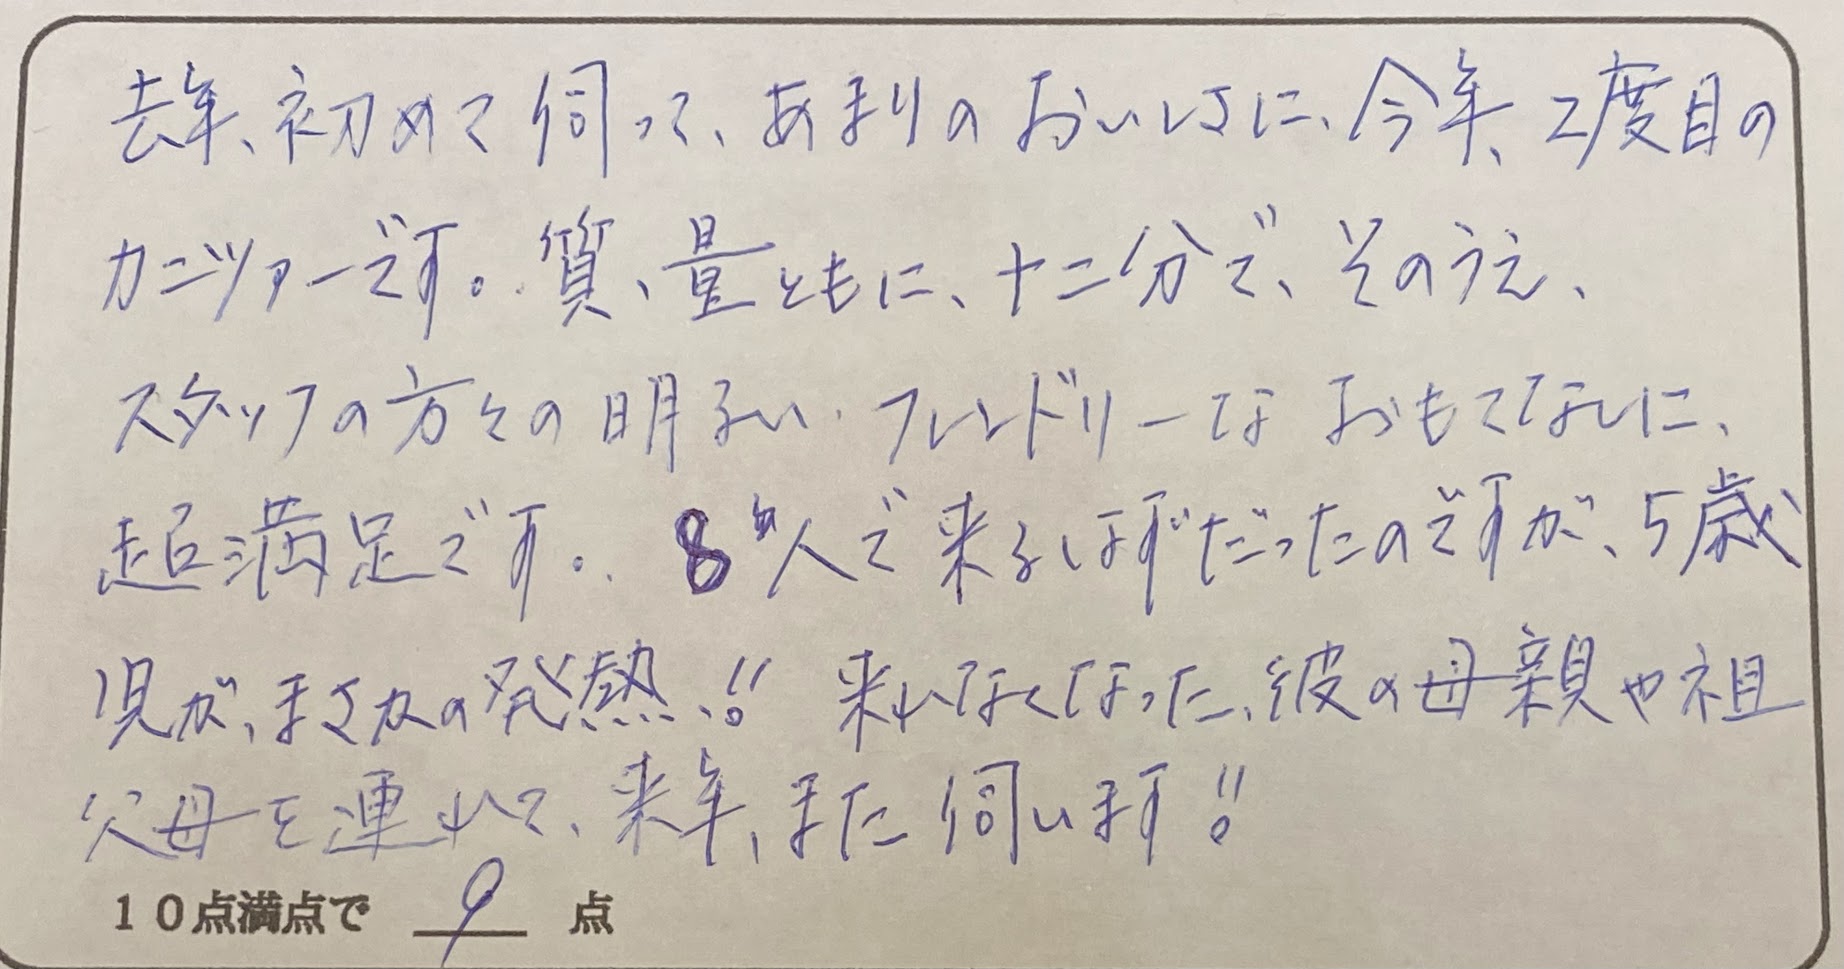 去年、初めて伺って、あまりのおいしさに、今年、2度目の
カニツアーです。質、量ともに、十二分で、そのうえ、
スタッフの方々の明るい、フレンドリーなおもてなしに、
超満足です。8人で来るはずだったのですが、5歳
児が、まさかの発熱!! 来れなくなった、彼の母親や祖
父母を連れて、来年、また伺います!!
10点満点で 9 点